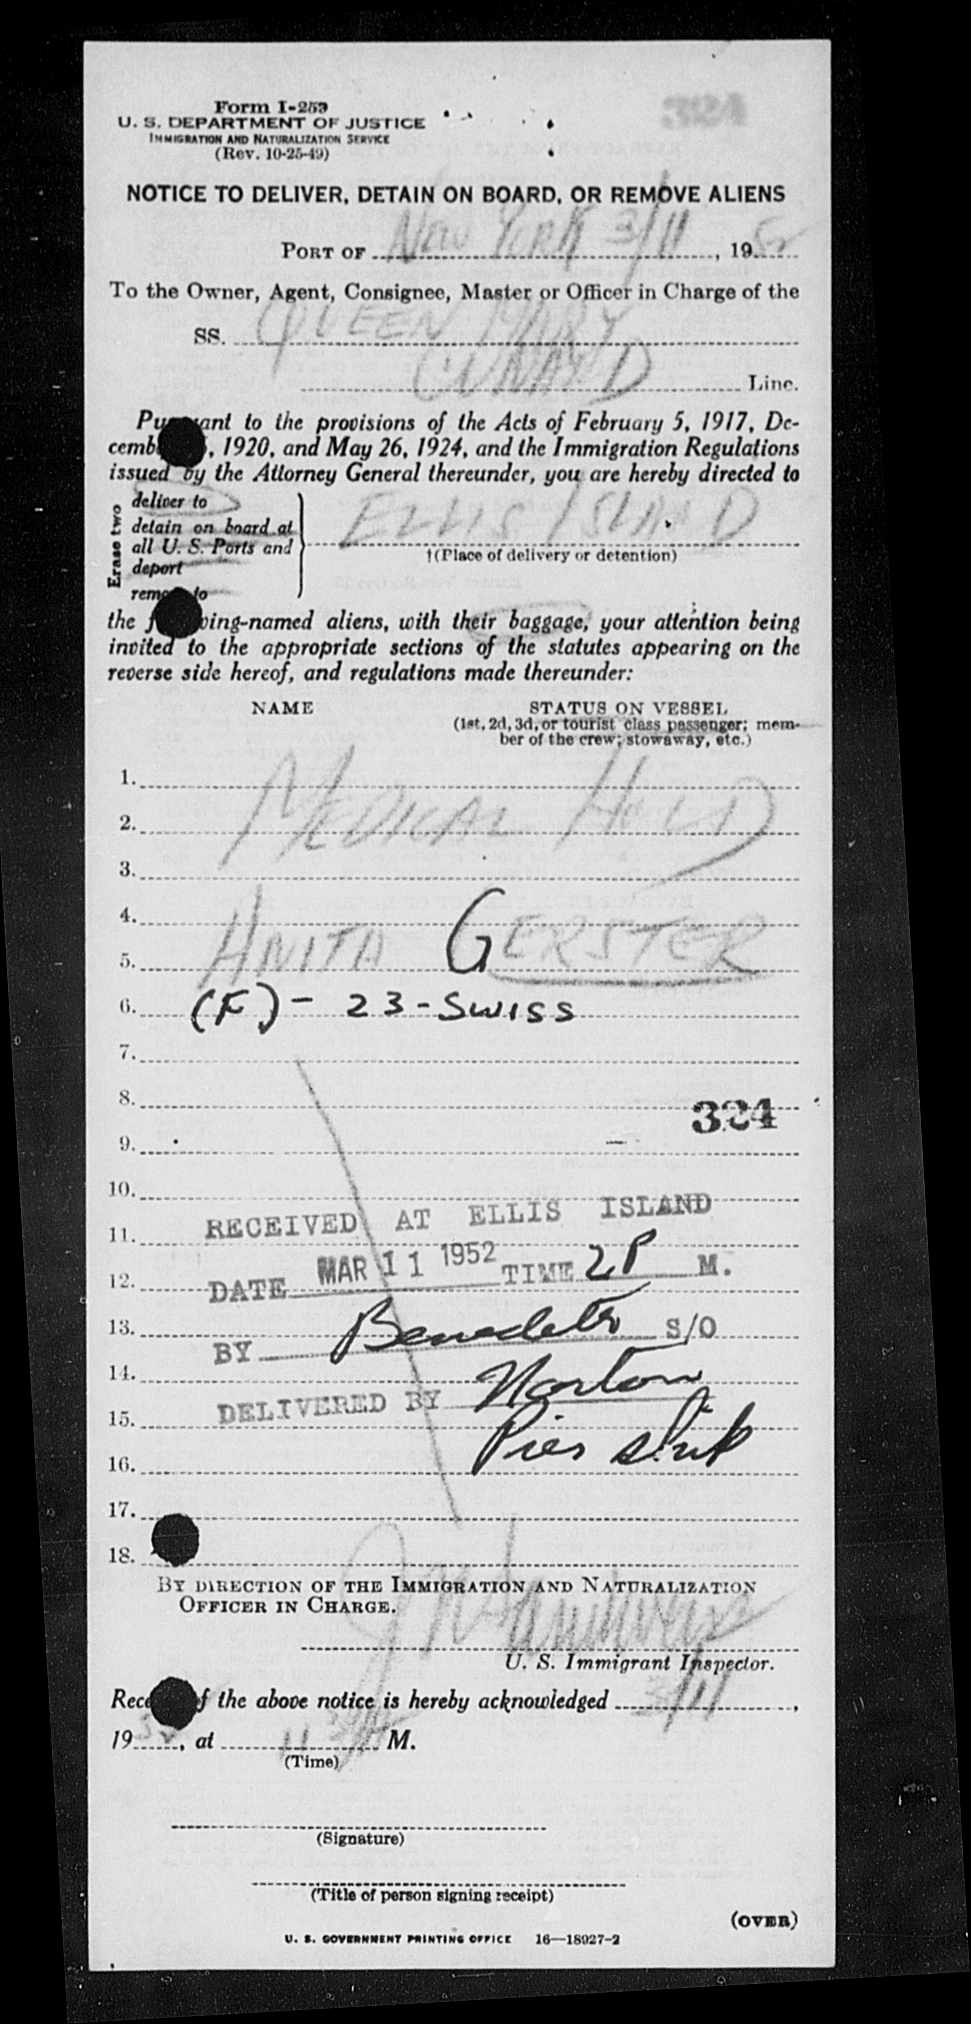 Form I-259
U. S. DEPARTMENT OF JUSTICE
IMMIGRATION AND NATURALIZATION SERVICE
(Rev. 10-25-49)
NOTICE TO DELIVER, DETAIN ON BOARD, OR REMOVE ALIENS
PORT OF New York 3/11, 1952
To the Owner, Agent, Consignee, Master or Officer in Charge of the
SS. QUEEN MARY
CUNARD Line.
Pursuant to the provisions of the Acts of February 5, 1917, De-
cember, 1920, and May 26, 1924, and the Immigration Regulations
issued by the Attorney General thereunder, you are hereby directed to
Erase two
deliver to
detain on board at
all U. S. Ports and
deport
remove to
ELLIS ISLAND
†(Place of delivery or detention)
the following-named aliens, with their baggage, your attention being
invited to the appropriate sections of the statutes appearing on the
reverse side hereof, and regulations made thereunder:
NAME STATUS ON VESSEL
(1st, 2d, 3d, or tourist class passenger; mem-
ber of the crew; stowaway, etc.)
1.
2. MEDICAL HOLD
3.
4.
5. ANITA GERSTER
6. (F) - 23 - SWISS
7.
8. 324
9.
10.
11. RECEIVED AT ELLIS ISLAND
12. DATE MAR 11 1952 TIME 2 P M.
13. BY Benedetto S/O
14.
15. DELIVERED BY Norton
16. Pier
17.
18.
BY DIRECTION OF THE IMMIGRATION AND NATURALIZATION
OFFICER IN CHARGE.
U. S. Immigrant Inspector.
Receipt of the above notice is hereby acknowledged 3/11,
1952, at 11 M.
(Time)
(Signature)
(Title of person signing receipt)
(OVER)
U. S. GOVERNMENT PRINTING OFFICE 16—18927-2